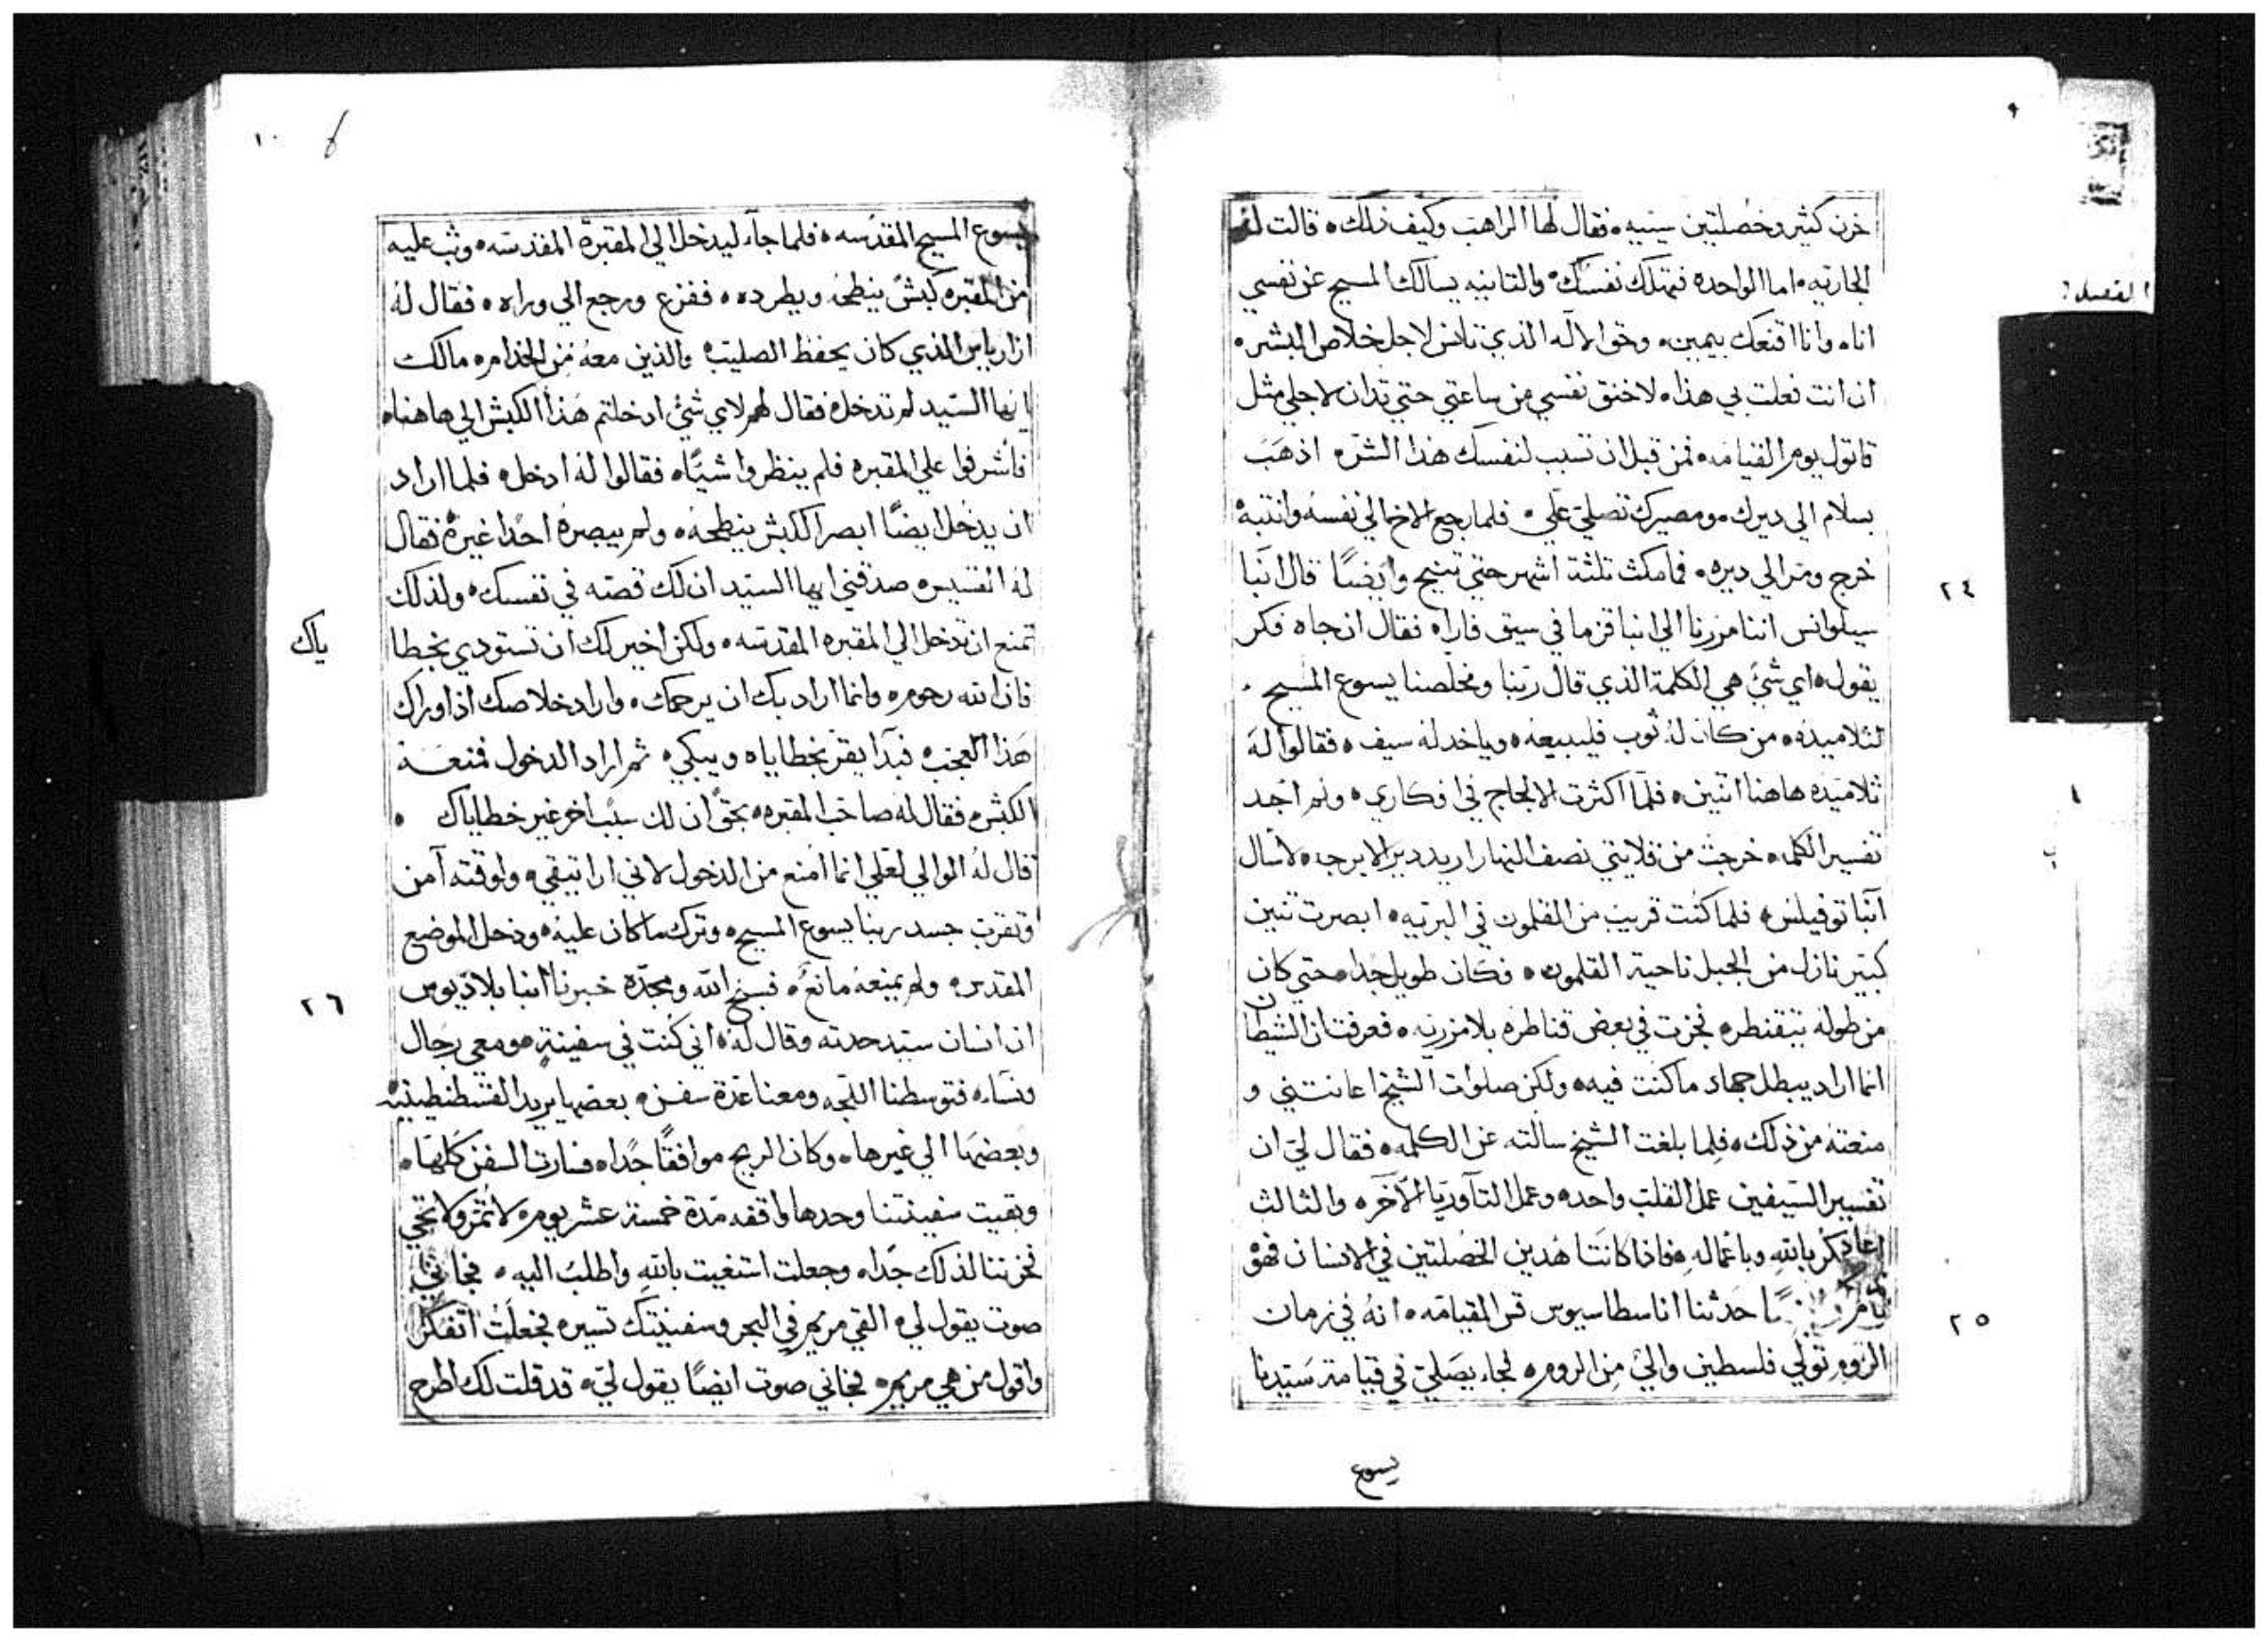 ٩
حزن كثير وخصلتين سيييه ۰ فقال لها الراهب وكيف ذلك ۰ قالت له
الجاريه ۰ اما الواحده فتهلك نفسك ۰ والثانيه يسالك المسيح عن نفسي
انا ۰ وانا اقنعك بيمين ۰ وحق الاله الذي تانس لاجل خلاص البشر ۰
ان انت فعلت بي هذا ۰ لاخنق نفسي من ساعتي حتي تدان لاجلي مثل
قاتول يوم القيامه ۰ فمن قبل ان تسبب لنفسك هذا الشر ۰ اذهب
بسلام الي ديرك ۰ ومصيرك تصلي علي ۰ فلما رجع الاخ الي نفسه وانتبه
خرج ومر الي ديره ۰ فما مكث تلثة اشهر حتي تنيح وايضًا قال انبا
٢٤
سيلوانس اننا مررنا الي انبا قزما في سيق فارا ۰ فقال ان جاه فكر
يقول ۰ اي شئ هي الكلمة الذي قال ربنا ومخلصنا يسوع المسيح ۰
لتلاميده ۰ من كان له ثوب فليبيعه ۰ وياخد له سيف ۰ فقالوا له
تلاميده هاهنا اتنين ۰ فلما اكثرت الالجاج في افكاري ۰ ولم اجد
تفسير الكلمه ۰ خرجت من قلايتي نصف النهار اريد دير الابرجه ۰ لاسال
انبا توفيلس ۰ فلما كنت قريب من القلمون في البريه ۰ ابصرت تنين
كبير نازل من الجبل ناحية القلمون ۰ فكان طويل جدا ۰ حتي كان
من طوله يتقنطر ۰ فجزت في بعض قناطره بلا مزريه ۰ فعرفت ان الشيطان
انما اراد يبطل جهاد ما كنت فيه ۰ ولكن صلوات الشيخ اعانتني و
منعته من ذلك ۰ فلما بلغت الشيخ سالته عن الكلمه ۰ فقال لي ان
تفسير السيفين عمل القلب واحد ۰ وعمل التاوريا الاخر ۰ والثالث
ذكر بالله وباعماله ۰ فاذا كانتا هدين الخصلتين في الانسان فهو
حدثنا اناسطاسيوس قس القيامه ۰ انه في زمان
٢٥
الروم تولي فلسطين والي من الروم ۰ لجاء يصلي في قيامة سيدنا
يسوع
١٠
يسوع المسيح المقدسه ۰ فلما جاء ليدخل الي المقبرة المقدسه ۰ وثب عليه
من المقبره كبش ينطحه ويطرده ۰ ففزع ورجع الي وراه ۰ فقال له
ازارياس الذي كان يحفظ الصليب ۰ والذين معه من الخدام ۰ مالك
ايها السيد لم تدخل ۰ فقال لهم لاي شئ ادخلتم هذا الكبش الي هاهنا ۰
فأشرفوا علي المقبره فلم ينظروا شيئًا ۰ فقالوا له ادخل ۰ فلما اراد
ان يدخل ايضًا ابصر الكبش ينطحه ۰ ولم يبصره احدا غيره فقال
له القسيس ۰ صدقني ايها السيد ان لك قصه في نفسك ۰ ولذلك
تمنع ان تدخل الي المقبره المقدسه ۰ ولكن اخير لك ان تستودي بخطاياك
فان الله رحوم ۰ وانما اراد بك ان يرحمك ۰ واراد خلاصك اذ اوراك
هذا العجب ۰ فبدا يقر بخطاياه ويبكي ۰ ثم اراد الدخول فمنعه
الكبش ۰ فقال له صاحب المقبره ۰ بحق ان لك سبب اخر غير خطاياك ۰
قال له الوالي لعلي انما امنع من الدخول لاني اراتيقي ۰ ولوقته آمن
وتقرب جسد ربنا يسوع المسيح ۰ وترك ما كان عليه ۰ ودخل الموضع
المقدس ۰ ولم يمنعه مانع ۰ فسبح الله ومجده خبرنا انبا بلاديوس
٢٦
ان انسان سيد حدته وقال له ۰ اني كنت في سفينة ۰ ومعي رجال
ونساء ۰ فتوسطنا اللجه ومعنا عدة سفن ۰ بعضها يريد القسطنطينيه
وبعضها الي غيرها ۰ وكان الريح موافقًا جدا ۰ فسارت السفن كلها ۰
وبقيت سفينتنا وحدها واقفه مدة خمسة عشر يوم ۰ لا تمر ولا تجي
فحزننا لذلك جدا ۰ وجعلت استغيت بالله واطلب اليه ۰ فجاني
صوت يقول لي ۰ القي مريم في البحر وسفينتك تسير ۰ فجعلت اتفكر
واقول من هي مريم ۰ فجاني صوت ايضًا يقول لي ۰ قد قلت لك اطرح